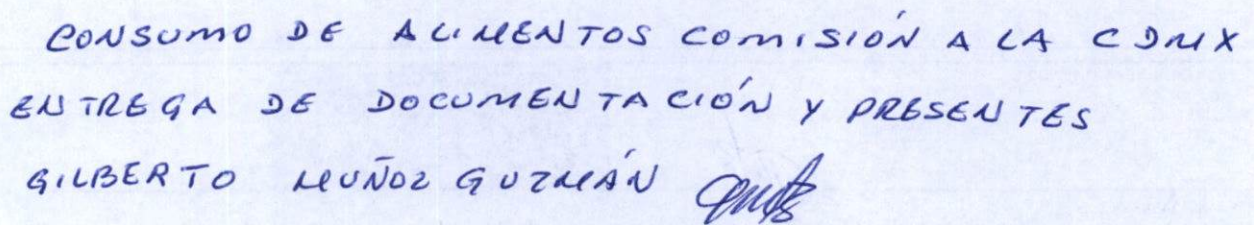 CONSUMO DE ALIMENTOS COMISIÓN A LA CDMX
ENTREGA DE DOCUMENTACIÓN Y PRESENTES
GILBERTO MUÑOZ GUZMÁN